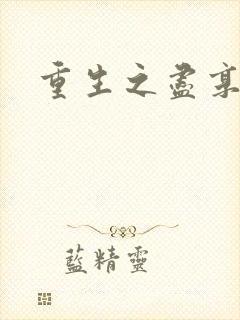 重生之盡
藍精靈